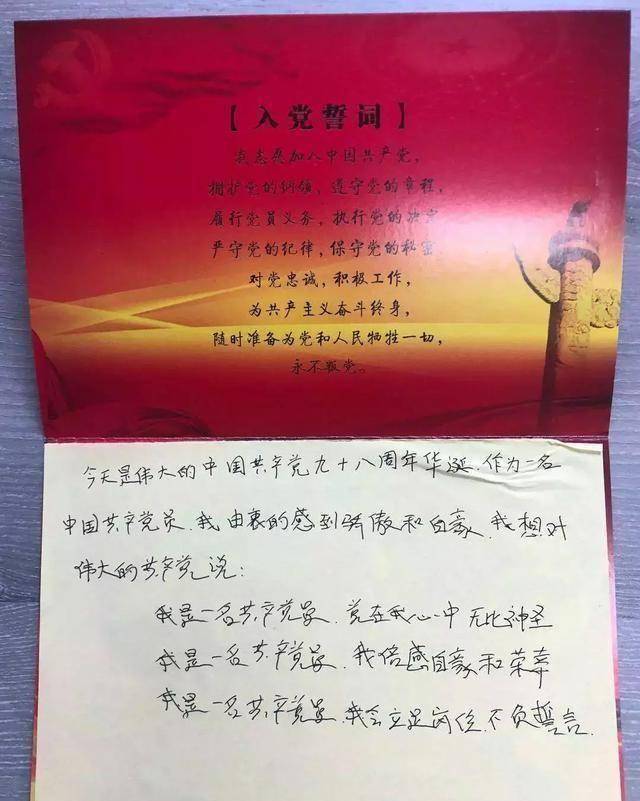 【入党誓词】
我志愿加入中国共产党，
拥护党的纲领，遵守党的章程，
履行党员义务，执行党的决定
严守党的纪律，保守党的秘密
对党忠诚，积极工作，
为共产主义奋斗终身，
随时准备为党和人民牺牲一切，
永不叛党。
今天是伟大的中国共产党九十八周年华诞.作为一名
中国共产党员.我由衷的感到骄傲和自豪.我想对
伟大的共产党说：
我是一名共产党员.党在我心中无比神圣
我是一名共产党员.我倍感自豪和荣幸
我是一名共产党员.我会立足岗位.不负誓言.